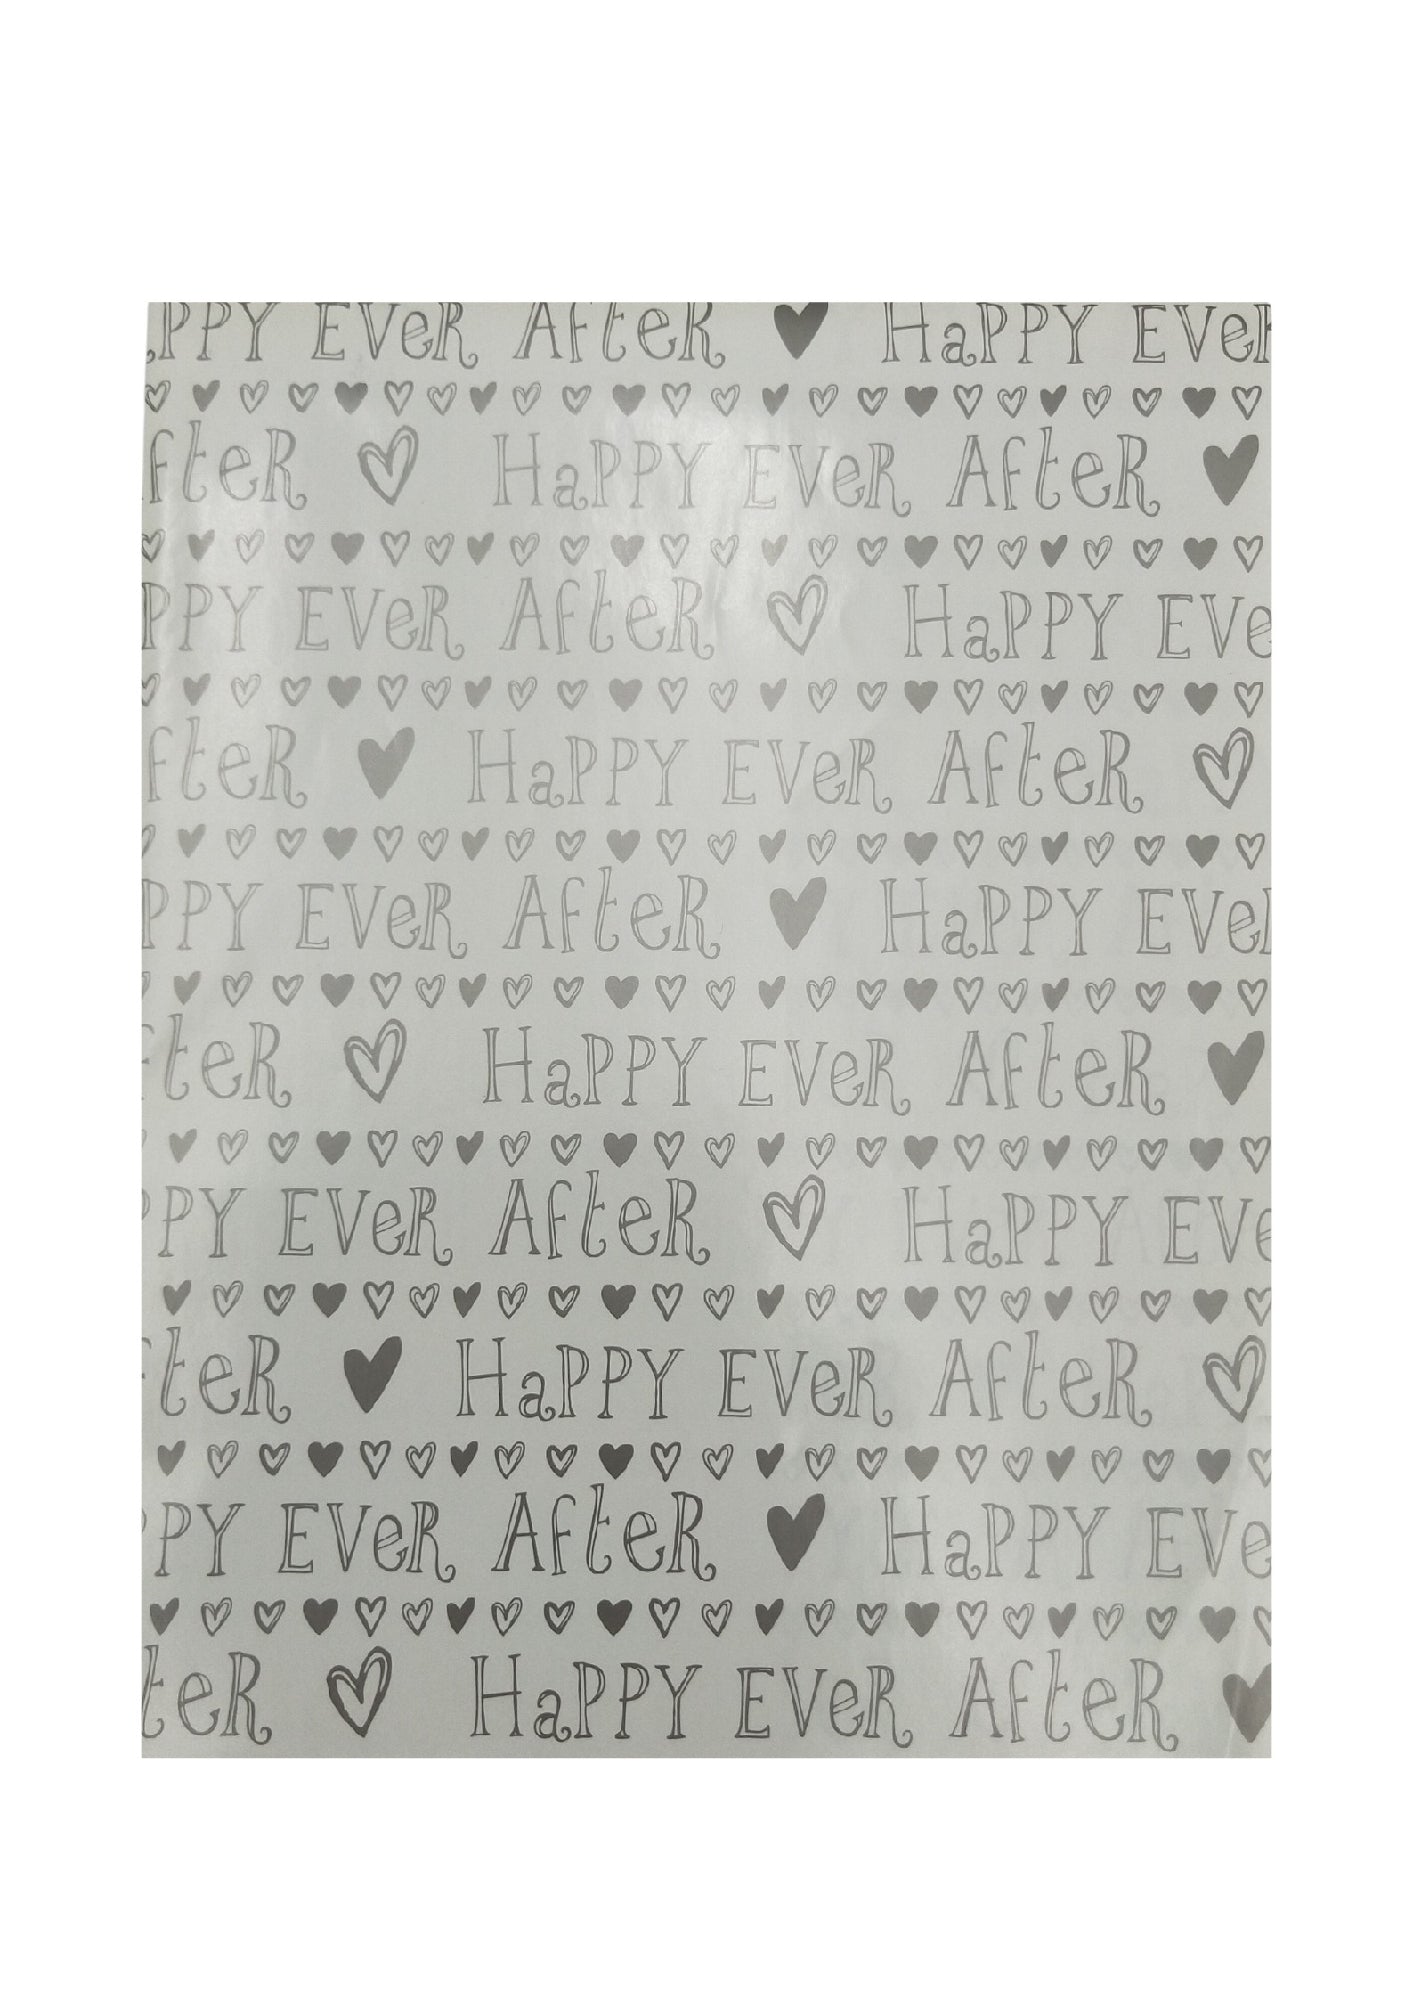 PPY EVeR AfteR HaPPY EVeR
fteR HaPPY EVeR AfteR
PPY EVeR AfteR HaPPY EVe
fteR HaPPY EVeR AfteR
PPY EVeR AfteR HaPPY EVe
teR HaPPY EVeR AfteR
PPY EVeR AfteR HaPPY EVe
teR HaPPY EVeR AfteR
PPY EVeR AfteR HaPPY EVe
teR HaPPY EVeR AfteR